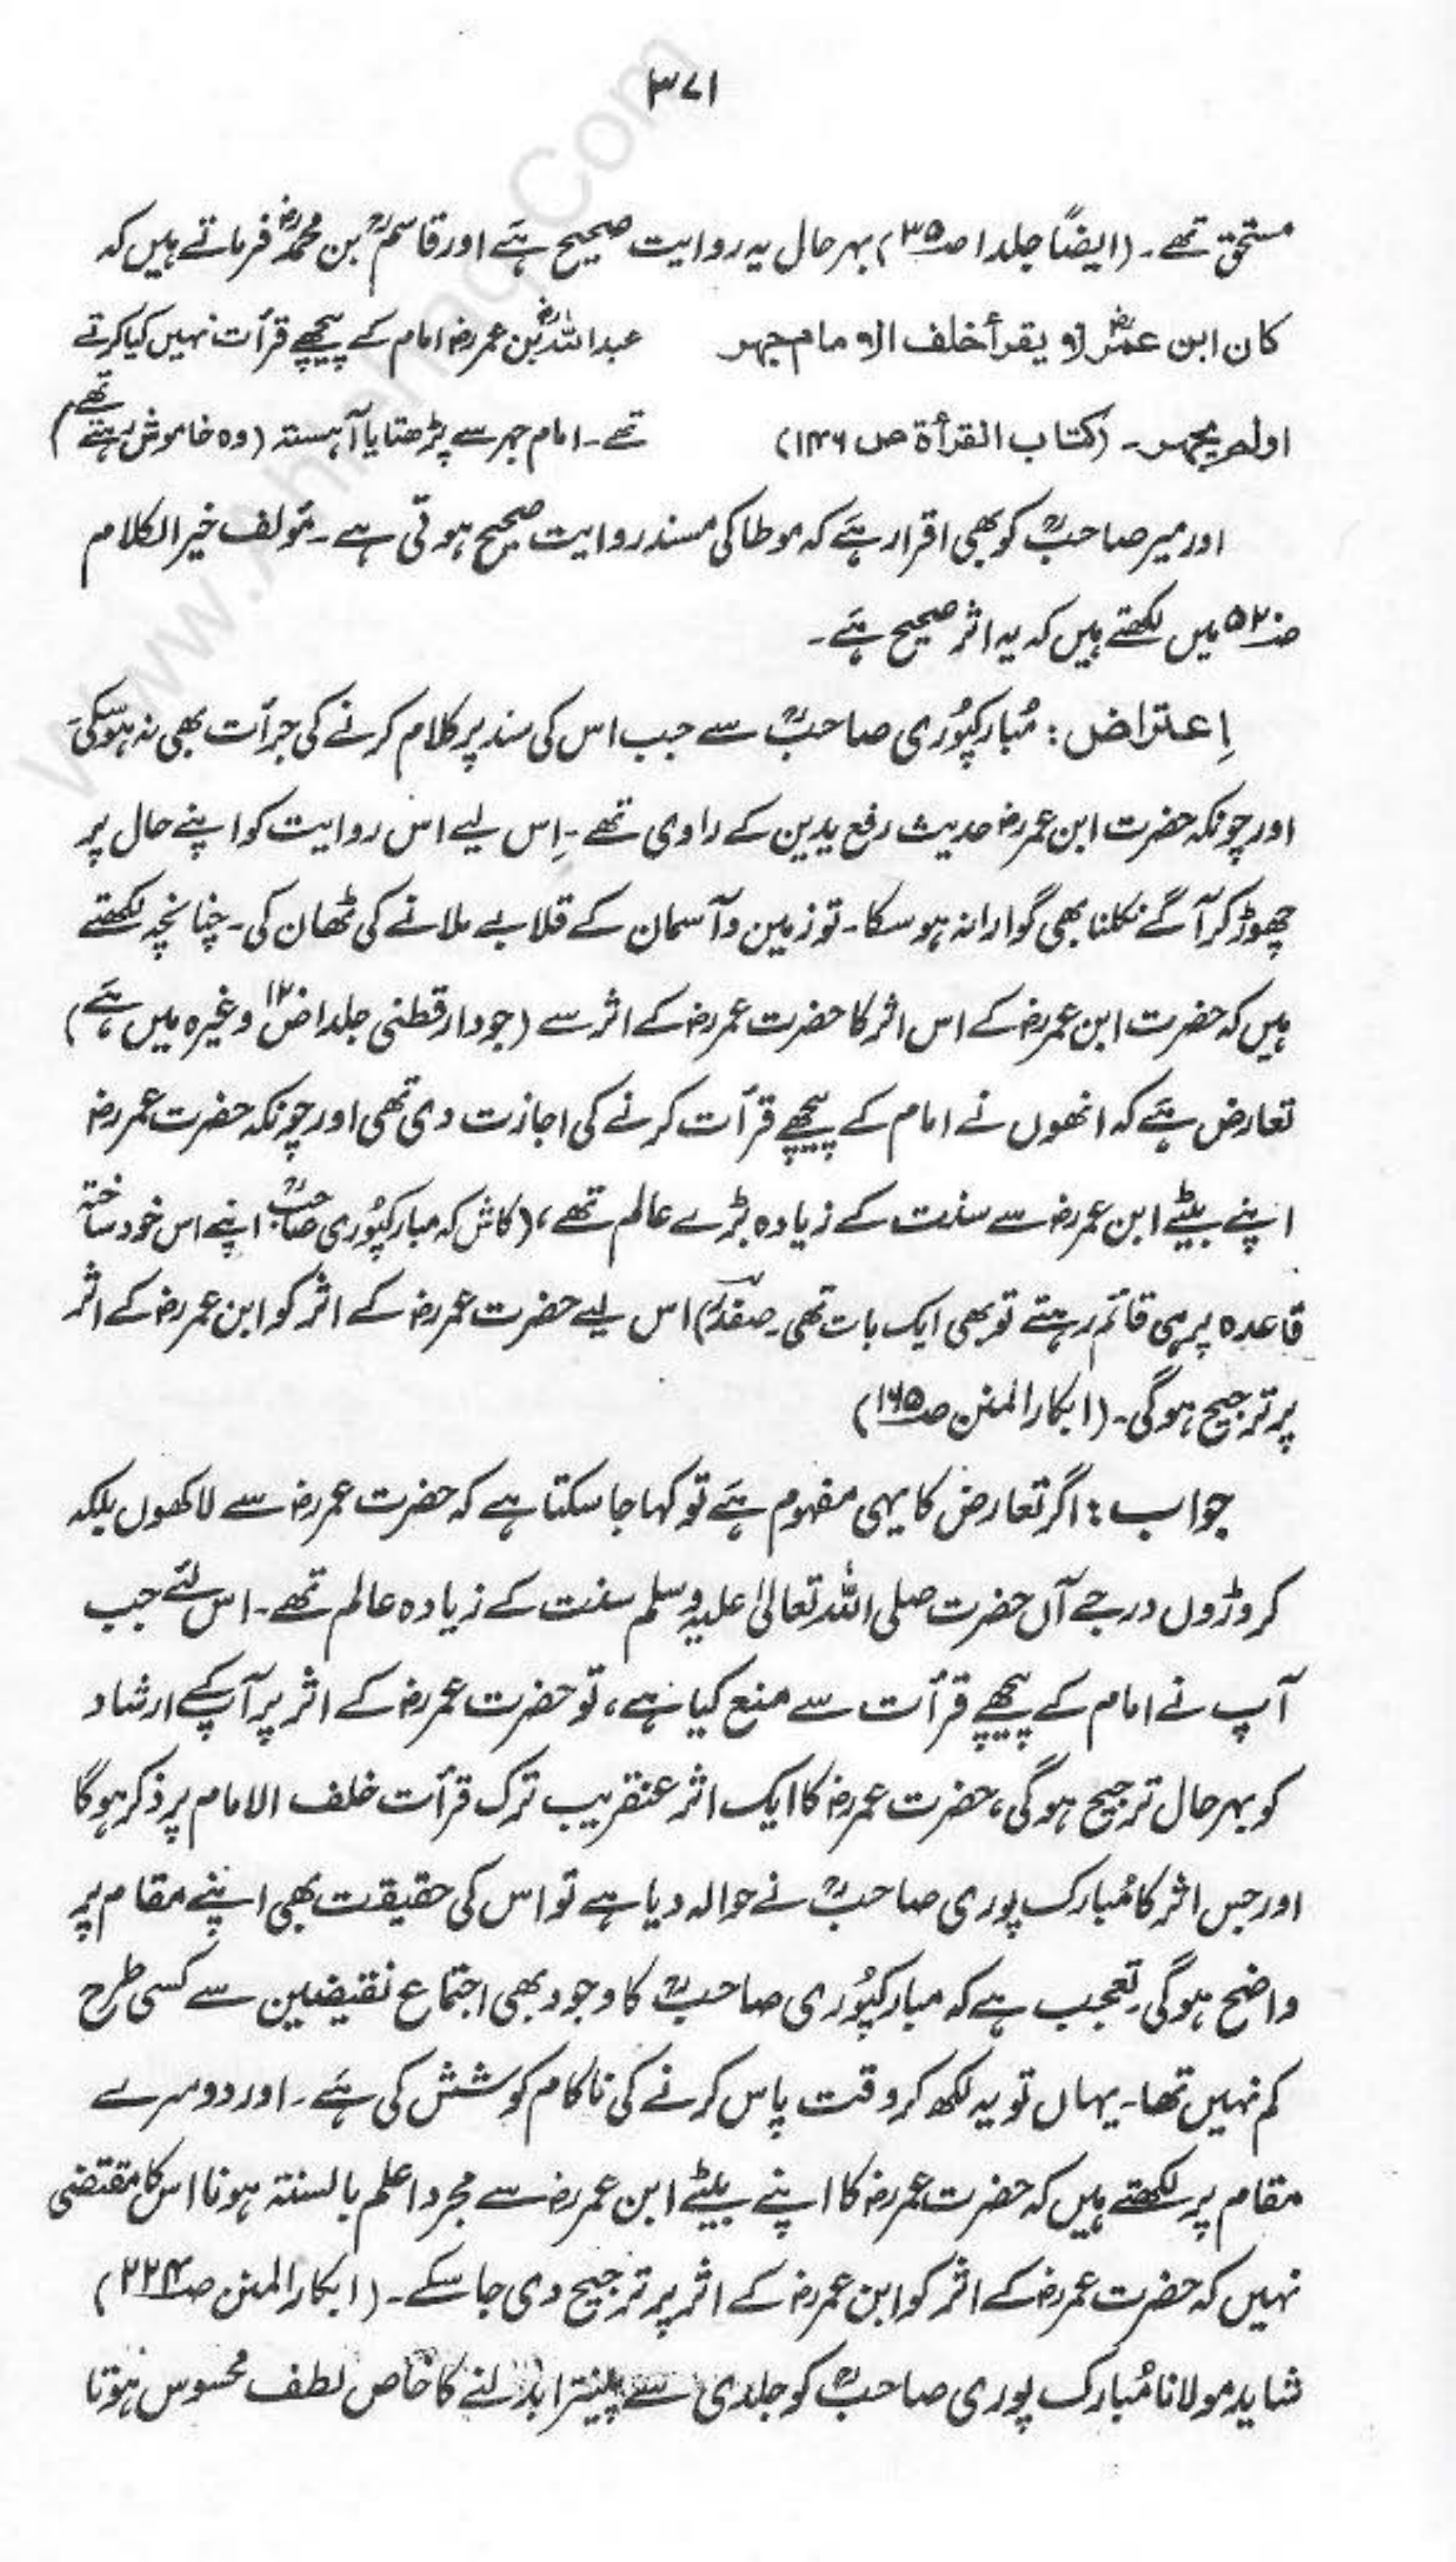 ۳۷۱
مستحق تھے۔ (ایضاً جلد ۱ ص ۳۵) بہر حال یہ روایت صحیح ہے اور قاسمؒ بن محمدؒ فرماتے ہیں کہ
كان ابن عمرؓ لا يقرأ خلف الامام جهر
عبداللہؓ بن عمرؓ امام کے پیچھے قرأت نہیں کیا کرتے
اولم يجهر۔ (کتاب القرأة ص ۱۴۶)
تھے۔ امام جہر سے پڑھتا یا آہستہ (وہ خاموش رہتے تھے)
اور میر صاحبؒ کو بھی اقرار ہے کہ موطا کی مسند روایت صحیح ہوتی ہے۔ مؤلف خیر الکلام
ص ۵۲۰ میں لکھتے ہیں کہ یہ اثر صحیح ہے۔
اِعتراض: مُبارکپُوری صاحبؒ سے جب اس کی سند پر کلام کرنے کی جرأت بھی نہ ہو سکی
اور چونکہ حضرت ابن عمرؓ حدیث رفع یدین کے راوی تھے۔ اِس لیے اس روایت کو اپنے حال پر
چھوڑ کر آگے نکلنا بھی گوارا نہ ہو سکا۔ تو زمین و آسمان کے قلابے ملانے کی ٹھان کی۔ چنانچہ لکھتے
ہیں کہ حضرت ابن عمرؓ کے اس اثر کا حضرت عمرؓ کے اثر سے (جو دارقطنی جلد ۱ ص ۱۲ وغیرہ میں ہے)
تعارض ہے کہ انھوں نے امام کے پیچھے قرأت کرنے کی اجازت دی تھی اور چونکہ حضرت عمرؓ
اپنے بیٹے ابن عمرؓ سے سنت کے زیادہ بڑے عالم تھے، (کاش کہ مبارکپُوری صاحبؒ اپنے اس خود ساختہ
قاعدہ پر ہی قائم رہتے تو بھی ایک بات تھی۔ صفدرؔ) اس لیے حضرت عمرؓ کے اثر کو ابن عمرؓ کے اثر
پر ترجیح ہوگی۔ (ابکار المنن ص ۱۶۵)
جواب: اگر تعارض کا یہی مفہوم ہے تو کہا جا سکتا ہے کہ حضرت عمرؓ سے لاکھوں بلکہ
کروڑوں درجے آں حضرت صلی اللہ تعالیٰ علیہ وسلم سنت کے زیادہ عالم تھے۔ اس لئے جب
آپ نے امام کے پیچھے قرأت سے منع کیا ہے، تو حضرت عمرؓ کے اثر پر آپ کے ارشاد
کو بہر حال ترجیح ہوگی، حضرت عمرؓ کا ایک اثر عنقریب ترک قرأت خلف الامام پر ذکر ہوگا
اور جس اثر کا مُبارک پوری صاحبؒ نے حوالہ دیا ہے تو اس کی حقیقت بھی اپنے مقام پر
واضح ہوگی۔ تعجب ہے کہ مبارکپُوری صاحبؒ کا وجود بھی اجتماع نقیضین سے کسی طرح
کم نہیں تھا۔ یہاں تو یہ لکھ کر وقت پاس کرنے کی ناکام کوشش کی ہے۔ اور دوسرے
مقام پر لکھتے ہیں کہ حضرت عمرؓ کا اپنے بیٹے ابن عمرؓ سے مجرد اعلم بالسنۃ ہونا اس کا مقتضی
نہیں کہ حضرت عمرؓ کے اثر کو ابن عمرؓ کے اثر پر ترجیح دی جا سکے۔ (ابکار المنن ص ۲۲۴)
شاید مولانا مُبارک پوری صاحبؒ کو جلدی سے پینترا بدلنے کا خاص لطف محسوس ہوتا